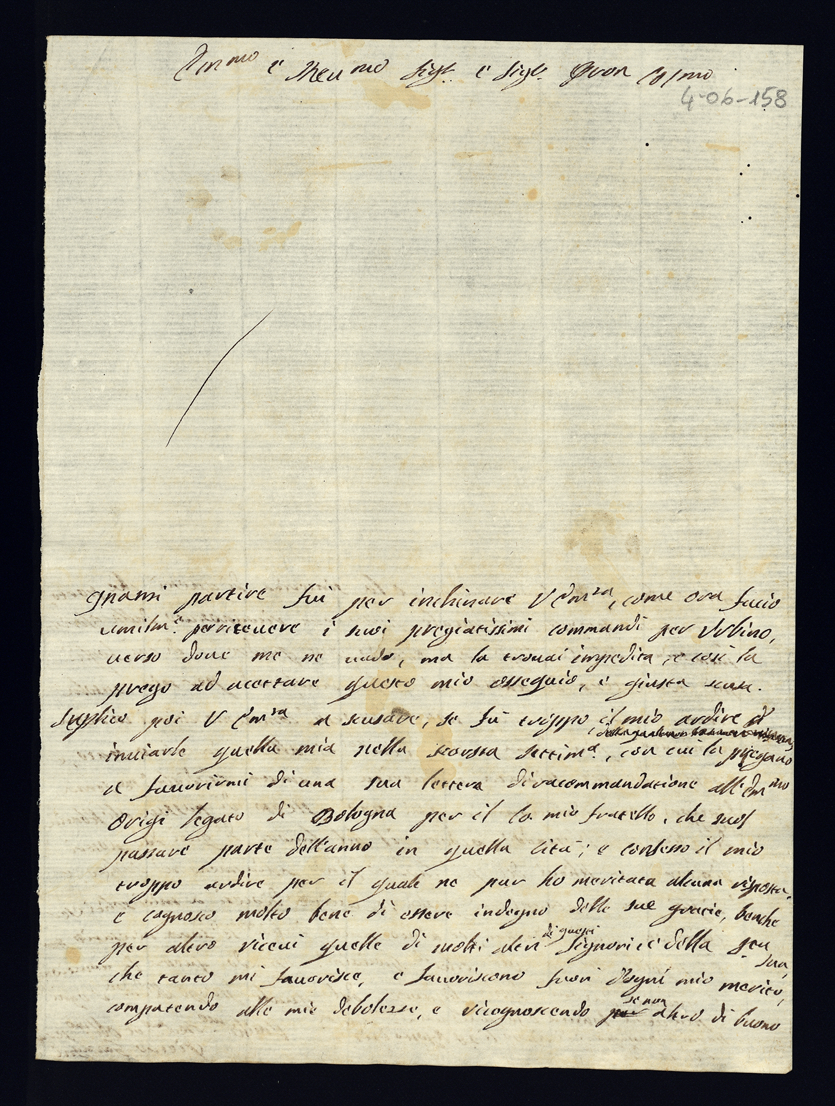 Emmo e Reumo Sigr. e Sigr. Pron Colmo
4-06-158
gnami partire fui per inchinare V Emza, come ora facio
umilme. per ricevere i suoi pregiatissimi commandi per Urbino,
verso dove me ne vado, ma la trovai impedita, e così la
prego ad accettare questo mio ossequio, e giusta scusa.
Suplico poi V Emza a scusare, se fù troppo il mio ardire di
inviarle quella mia nella scorsa settima., con cui la pregavo
a favorirmi di una sua lettera di racomandatione all Emmo
Origi legato di Bologna per il mio fratello, che suol
passare parte dell'anno in quella città; e confesso il mio
troppo ardire per il quale ne pur ho meritata alcuna risposta,
e cognosco molto bene di essere indegno delle sue gracie, benche
per altro ricevi quelle di molti altri di questi Signori; e della sua,
che tanto mi favorisce, e favoriscono fuori d'ogni mio merito,
compatendo alle mie debolezze, e ricognoscendo se non altro di buono